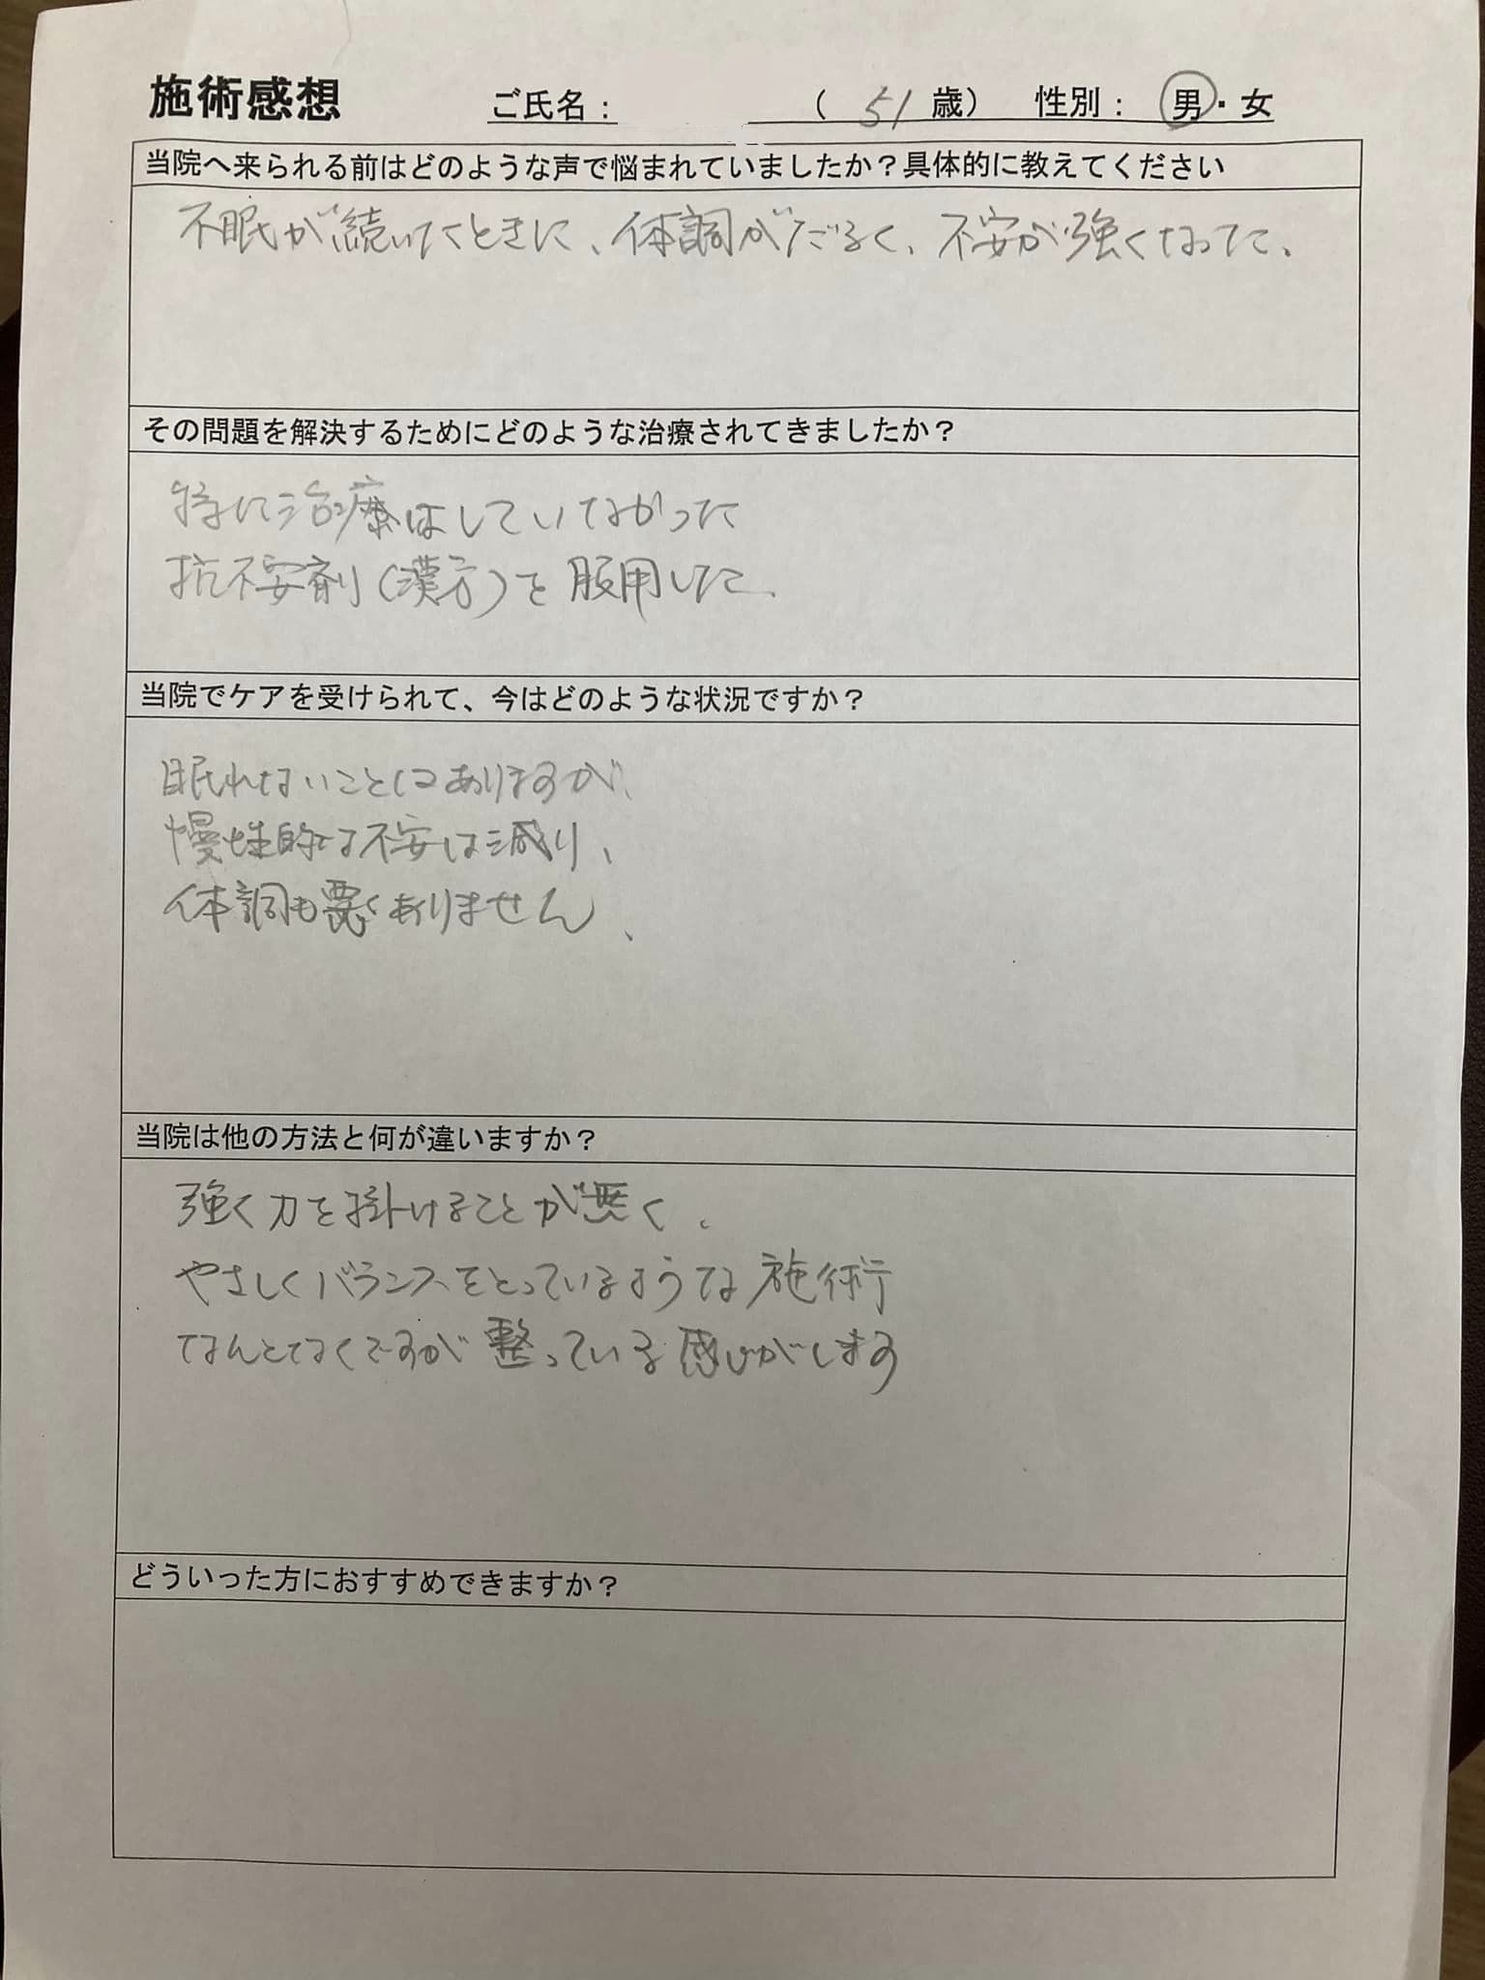 施術感想 ご氏名： （ 51 歳） 性別： 男・女
当院へ来られる前はどのような声で悩まれていましたか？具体的に教えてください
不眠が続いたときに、体調がだるく、不安が強くなってた、
その問題を解決するためにどのような治療されてきましたか？
特に治療はしていなかった
抗不安剤（漢方）を服用した、
当院でケアを受けられて、今はどのような状況ですか？
眠れないことはありますが、
慢性的な不安は減り、
体調も悪くありません、
当院は他の方法と何が違いますか？
強く力を掛けることが無く、
やさしくバランスをとっているような施術
なんとなくですが整っている感じがします
どういった方におすすめできますか？